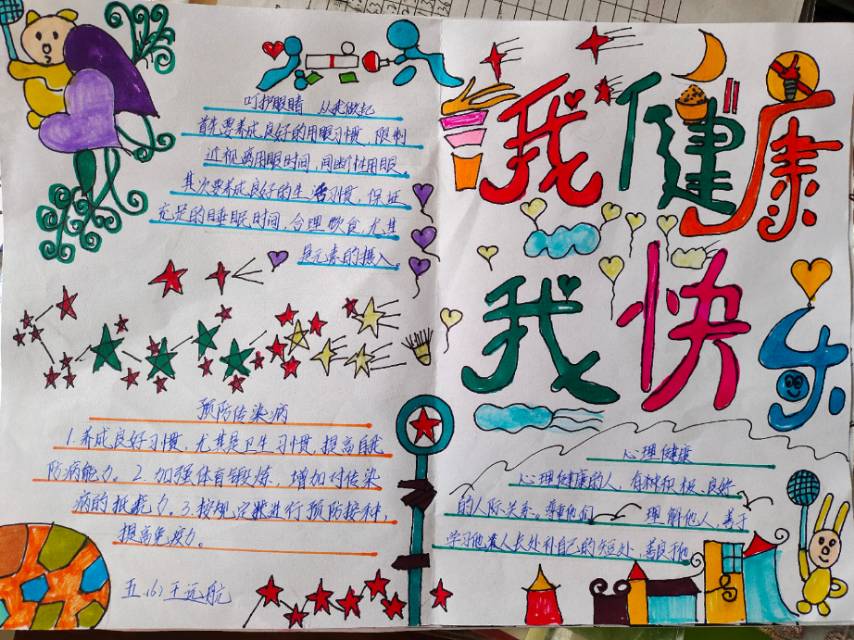 呵护眼睛 从我做起
首先要养成良好的用眼习惯，限制
近视离用眼时间，间断性用眼
其次要养成良好的生活习惯，保证
充足的睡眠时间，合理饮食尤其
是元素的摄入。
预防传染病
1.养成良好习惯，尤其是卫生习惯，提高自我
防病能力。2.加强体育锻炼，增加对传染
病的抵抗力。3.按规定进行预防接种，
提高免疫力。
五（6）王远航
我健康
我快乐
心理健康
心理健康的人，有积极、良好
的人际关系。尊重他们 理解他人，善于
学习他人长处补自己的短处，善良于他